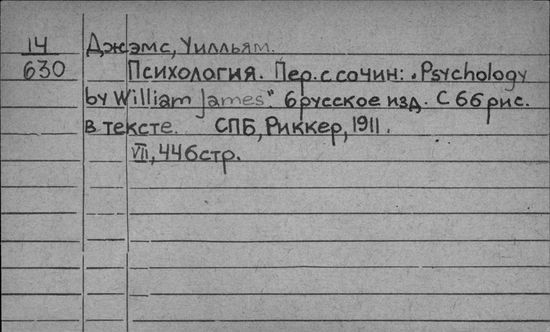 14 Джэмс, Уилльям.
630 Психология. Пер. с сочин: "Psychology
by William James". 6 русское изд. С 66 рис.
в тексте. СПБ, Риккер, 1911.
VII, 446 стр.